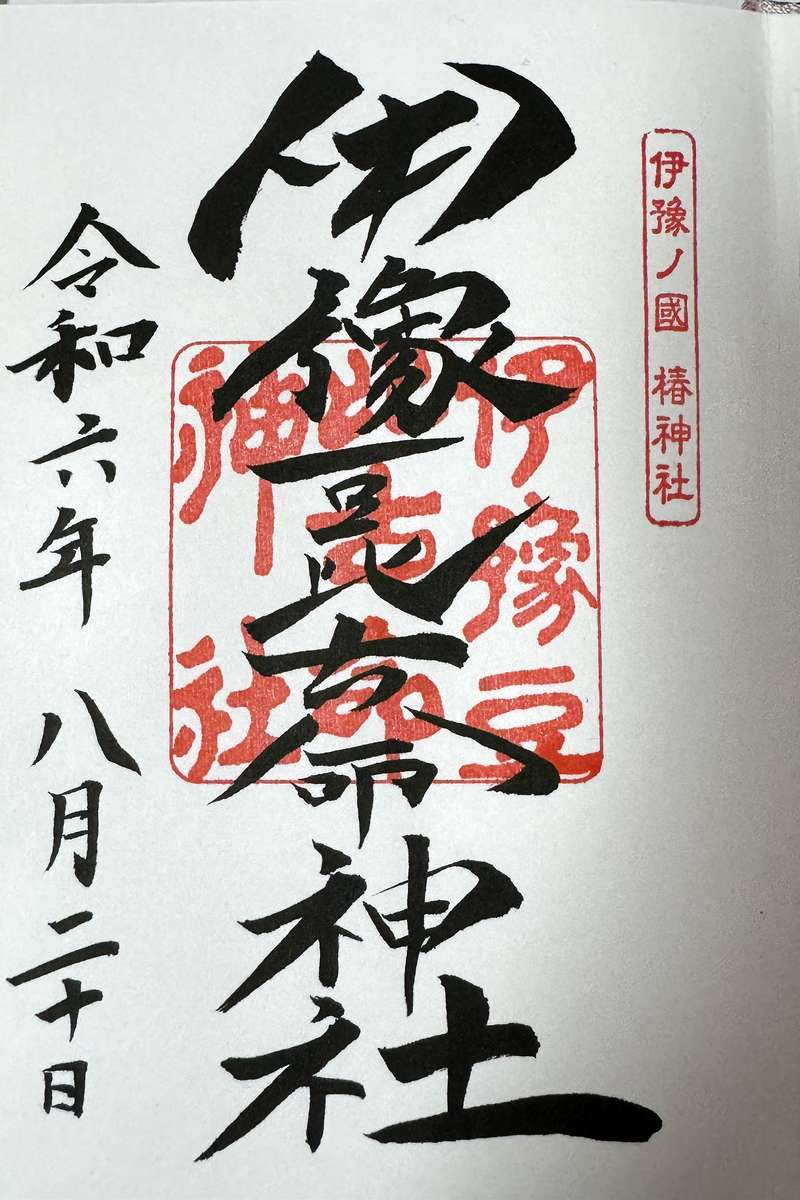 伊豫ノ國 椿神社
伊豫豆比古命神社
伊豫豆
比古命
神社
令和六年 八月二十日